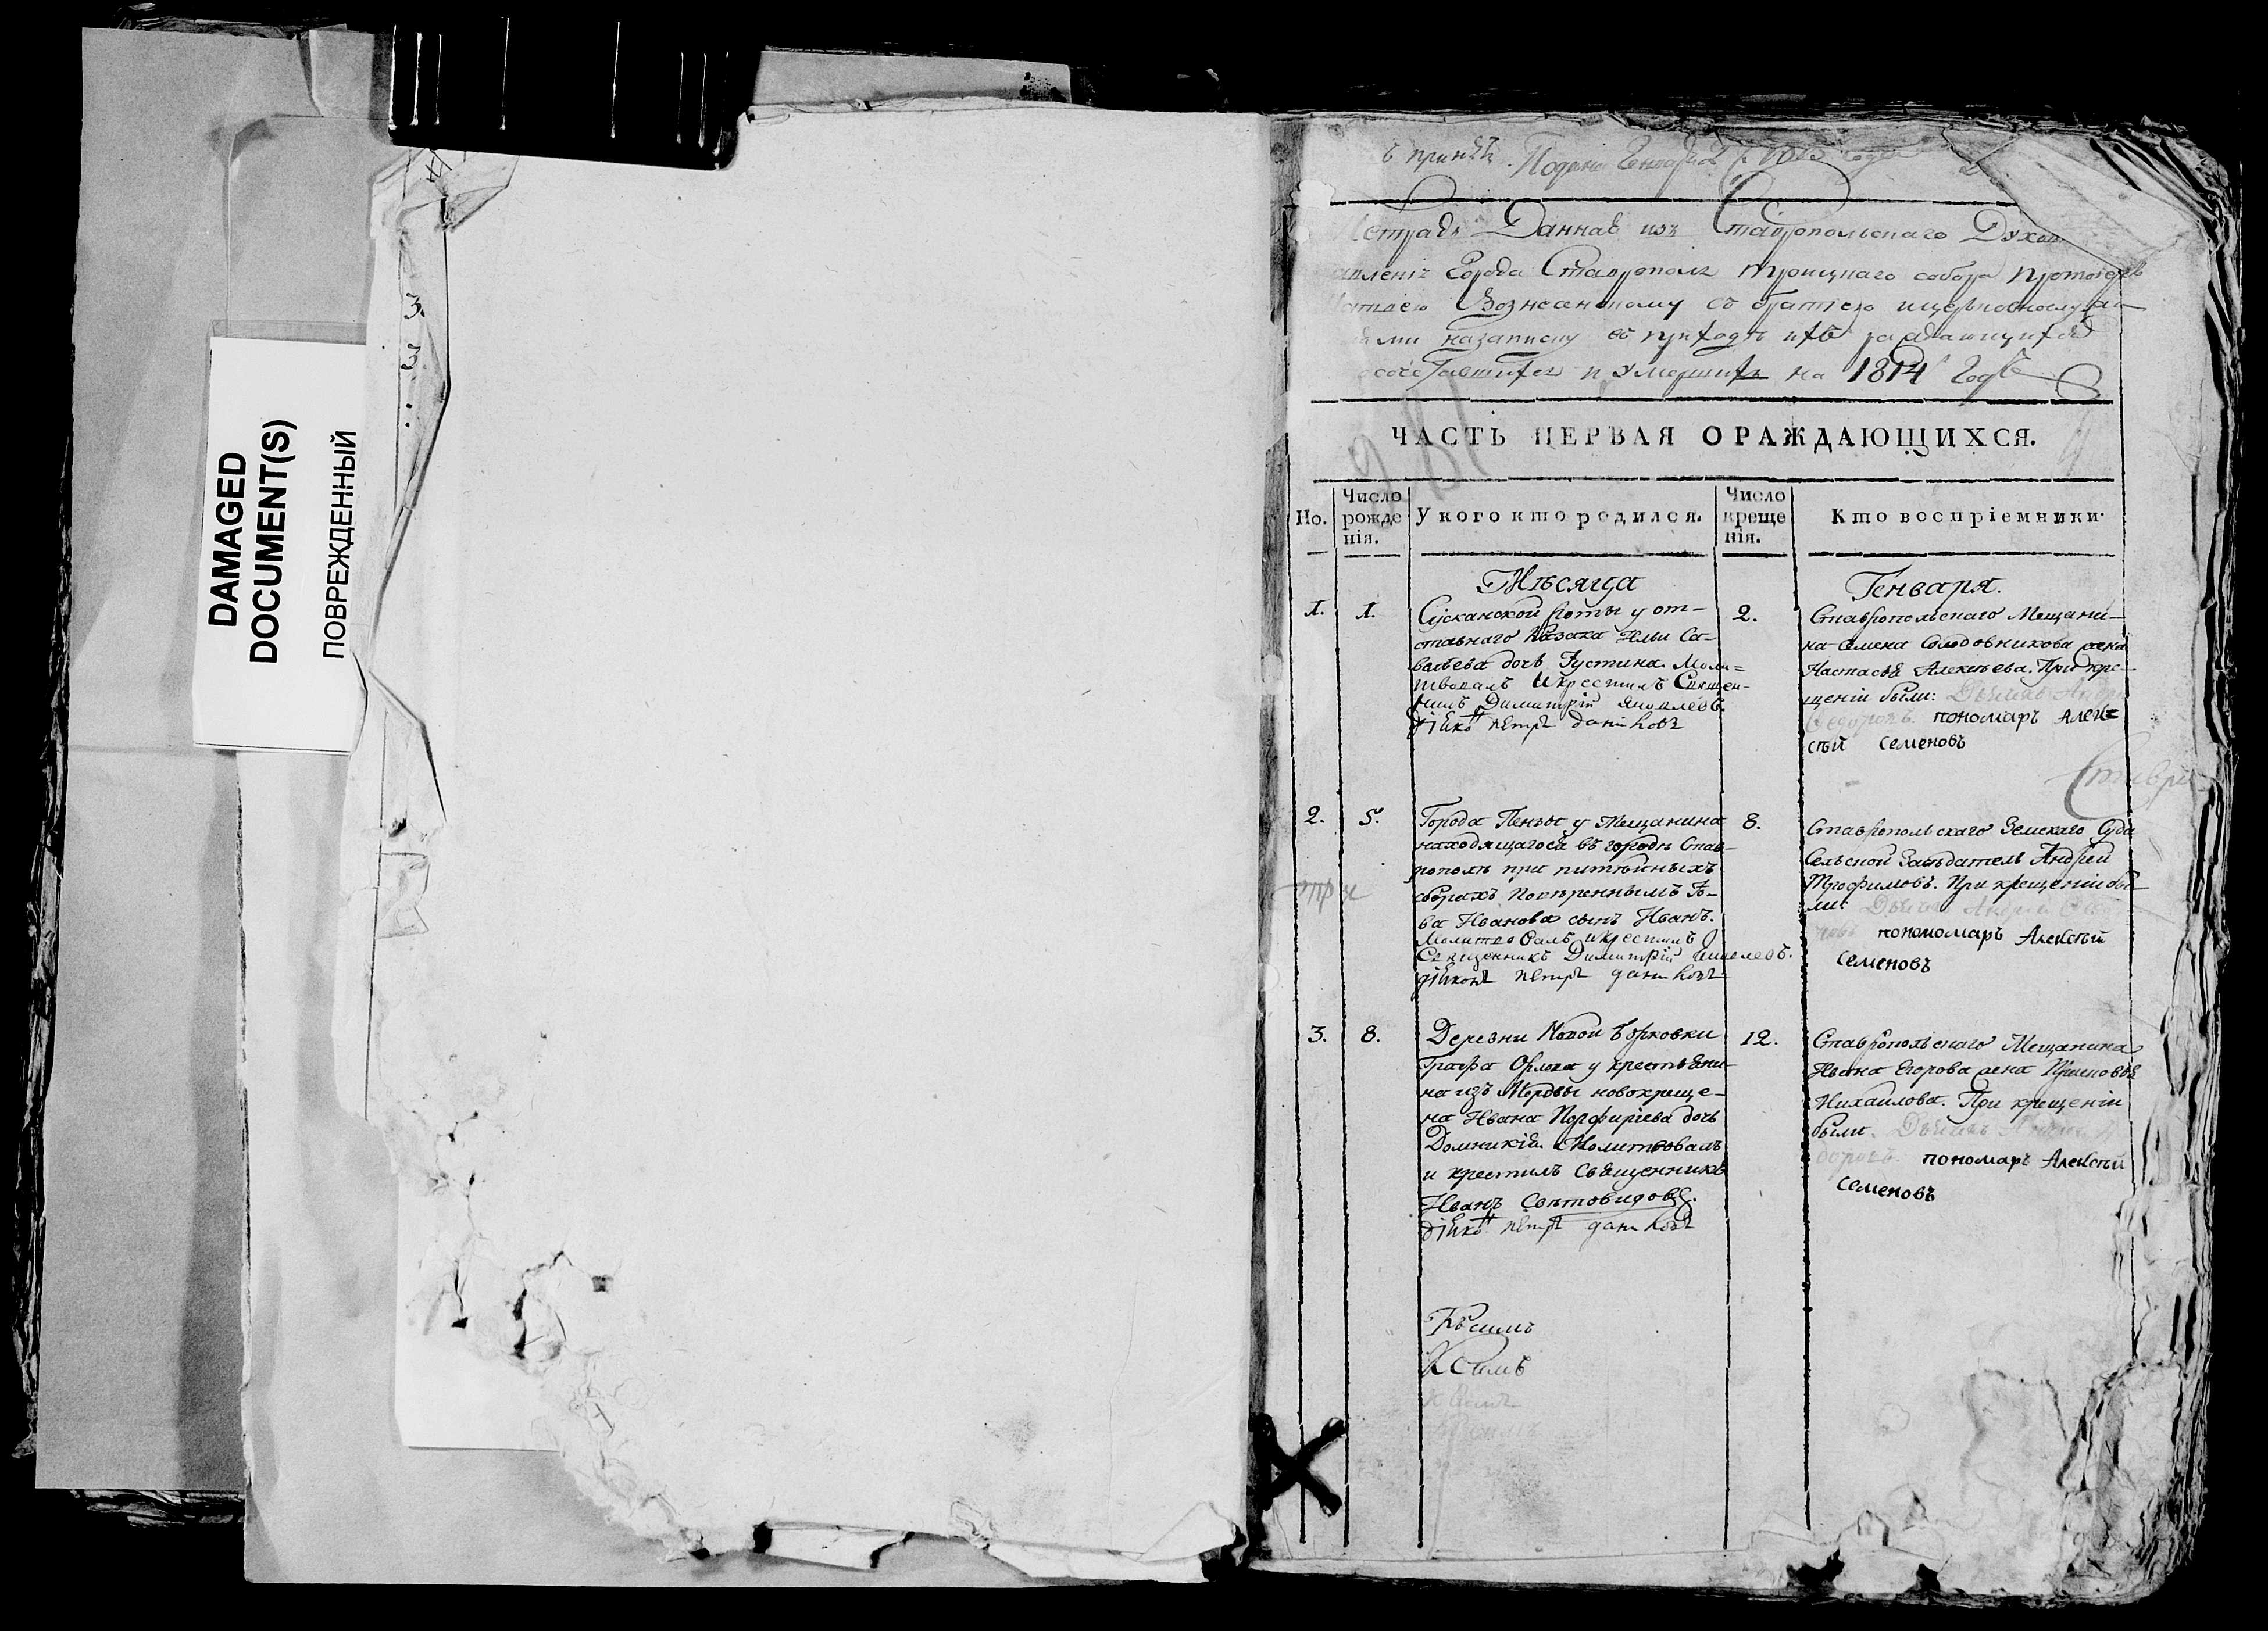 DAMAGED
DOCUMENT(S)
ПОВРЕЖДЕННЫЙ
3.
3
Подана Генваря
Данная изъ Ставропольскаго Духов
Города Ставрополя троицкаго собора протоіерею
Вознесенскому съ братіею ицерковнослужи
назаписку въ приходѣ ихъ раждающихся
и Умершихъ на 1814 Годъ
ЧАСТЬ ПЕРВАЯ ОРАЖДАЮЩИХСЯ.
Но.
Число рожденія.
У кого кто родился.
Число крещенія.
Кто воспріемники.
Мѣсяца
Генваря.
1.
1.
Сусканской роты у от-
ставнаго Казака Ильи Са-
вельева дочь Густина. Моли=
твовалъ и крестилъ Священ-
никъ Димитрій Яковлевъ.
діяконъ петръ даниловъ
2.
Ставропольскаго Мещани-
на Семена Солодовникова жена
Настасья Алексѣева. При кре-
щеніи были: Дьячекъ Андрей
Ѳедоровъ. пономарь Алек=
сѣй семеновъ
2.
5.
Города Пензы у Мещанина
находящагося въ городѣ Став-
рополѣ при питейныхъ
сборахъ повѣреннымъ
Иванова сынъ Иванъ.
Молитвовалъ и крестилъ
Священникъ Димитрій Яковлевъ.
діяконъ петръ даниловъ
8.
Ставропольскаго Земскаго Суда
Сельской Засѣдатель Андрей
Трофимовъ. При крещеніи бы-
ли: Дьячекъ Андрей
пономарь Алексѣй
семеновъ
3.
8.
Деревни Новой Борковки
Графа Орлова у крестьяни-
на изъ Мордвы новокреще-
на Ивана Порфиріева дочь
Домникія. Молитвовалъ
и крестилъ Священникъ
Иванъ Свѣтовидовъ.
діяконъ петръ даниловъ
12.
Ставропольскаго Мещанина
Ивана Егорова жена
Михайлова. При крещеніи
были. Дьячекъ
пономарь Алексѣй
семеновъ
Къ симъ